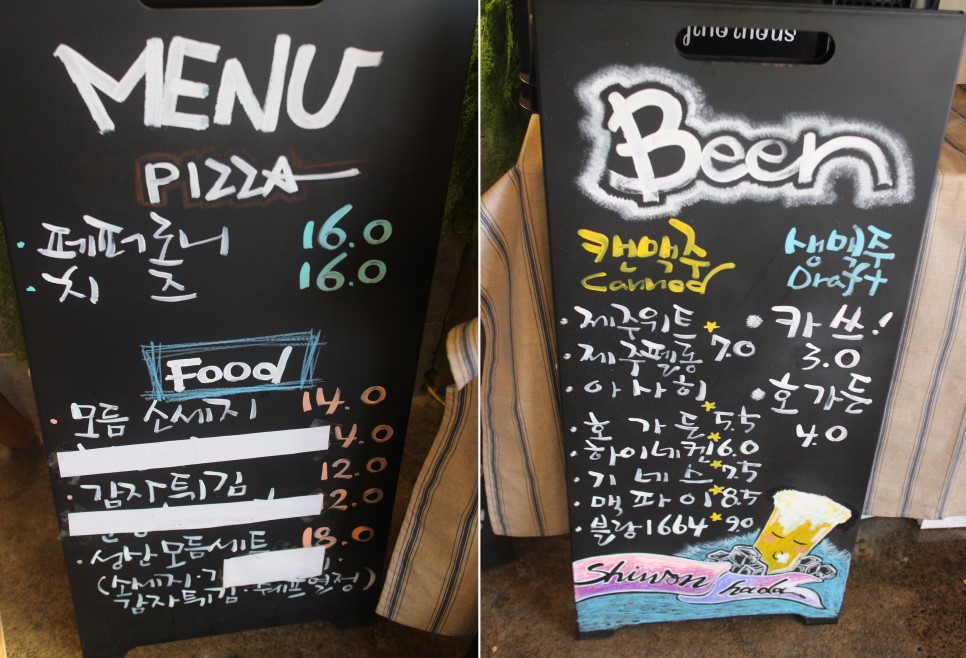 MENU
PIZZA
페퍼로니 16.0
치즈 16.0
Food
모듬 소세지 14.0
4.0
감자튀김 12.0
2.0
성난모듬세트 18.0
(소세지·
감자튀김·
Beer
캔맥주
Canned
제주위트
제주펠롱 7.0
아사히
호가든 5.5
하이네켄 6.0
기네스 7.5
맥파이 8.5
블랑1664 9.0
생맥주
Draft
카쓰!
3.0
호가든
4.0
Shiwon
hada